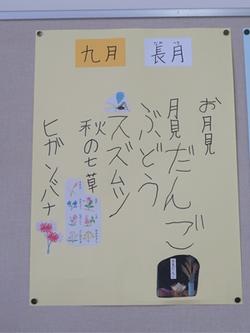 長月
九月
お月見
月見だんご
ぶどう
スズムシ
秋の七草
ヒガンバナ